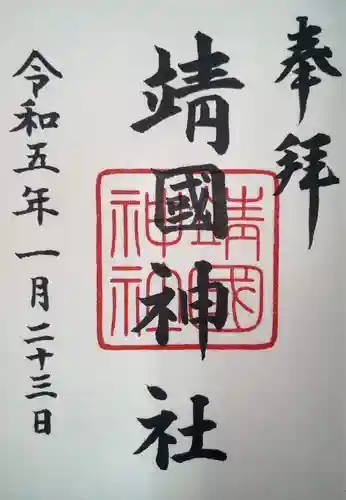 奉拝
靖國神社
靖國
神社
令和五年一月二十三日